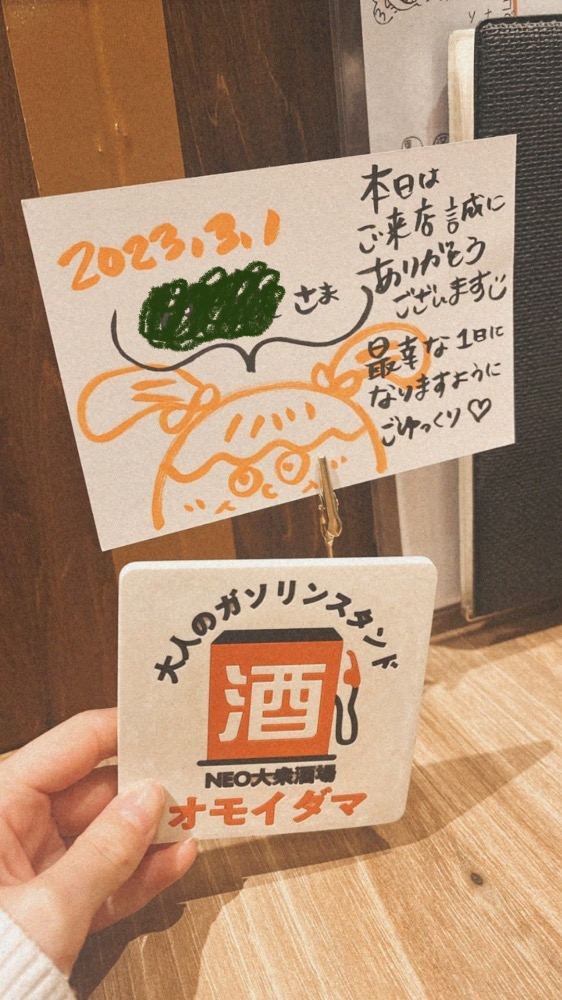 2023.3.1
さま
本日は
ご来店誠に
ありがとう
ございます
最幸な1日に
なりますように
ごゆっくり♡
大人のガソリンスタンド
酒
NEO大衆酒場
オモイダマ